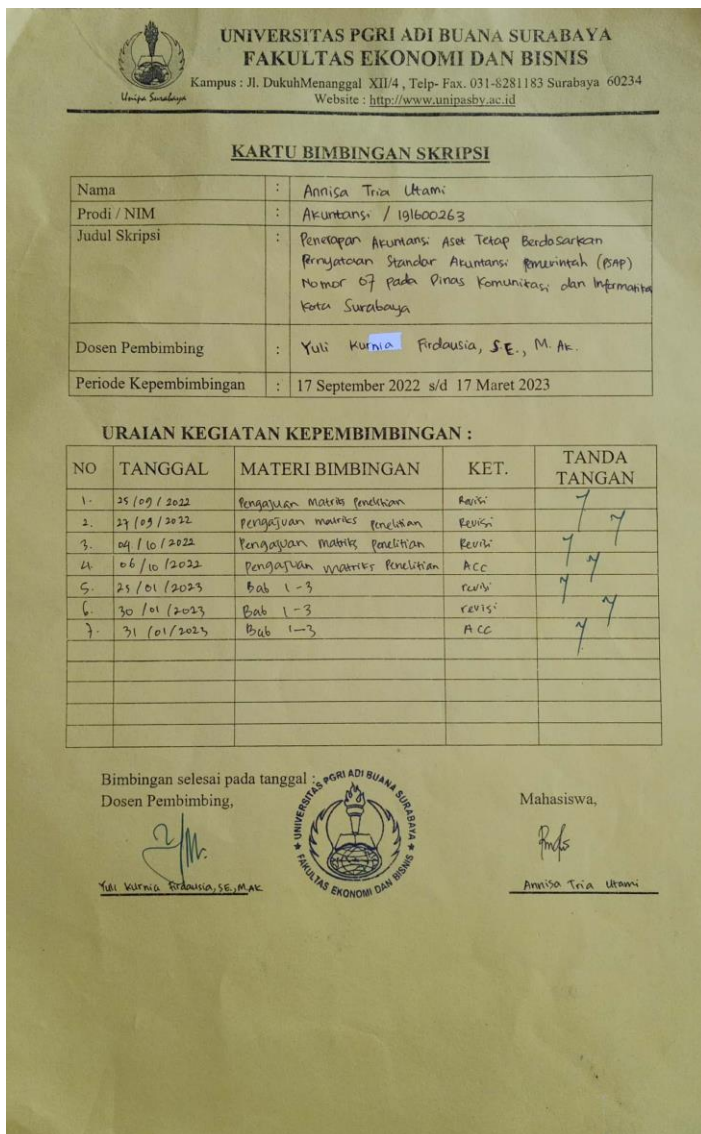 UNIVERSITAS PGRI ADI BUANA SURABAYA
FAKULTAS EKONOMI DAN BISNIS
Kampus : Jl. DukuhMenanggal XII/4 , Telp- Fax. 031-8281183 Surabaya 60234
Website : http://www.unipasby.ac.id
Unipa Surabaya
KARTU BIMBINGAN SKRIPSI
Nama : Annisa Tria Utami
Prodi / NIM : Akuntansi / 191600263
Judul Skripsi : Penerapan Akuntansi Aset Tetap Berdasarkan
Pernyataan Standar Akuntansi Pemerintah (PSAP)
Nomor 07 pada Dinas Komunikasi dan Informatika
Kota Surabaya
Dosen Pembimbing : Yuli Kurnia Firdausia, S.E., M. Ak.
Periode Kepembimbingan : 17 September 2022 s/d 17 Maret 2023
URAIAN KEGIATAN KEPEMBIMBINGAN :
NO TANGGAL MATERI BIMBINGAN KET. TANDA TANGAN
1. 25 / 09 / 2022 Pengajuan Matriks Penelitian Revisi
2. 27 / 09 / 2022 Pengajuan matriks Penelitian Revisi
3. 04 / 10 / 2022 Pengajuan matriks Penelitian Revisi
4. 06 / 10 / 2022 Pengajuan matriks Penelitian ACC
5. 25 / 01 / 2023 Bab 1 - 3 revisi
6. 30 / 01 / 2023 Bab 1 - 3 revisi
7. 31 / 01 / 2023 Bab 1 - 3 ACC
Bimbingan selesai pada tanggal :
Dosen Pembimbing,
Mahasiswa,
UNIVERSITAS PGRI ADI BUANA SURABAYA
FAKULTAS EKONOMI DAN BISNIS
Yuli Kurnia Firdausia, SE., M.AK
Annisa Tria Utami